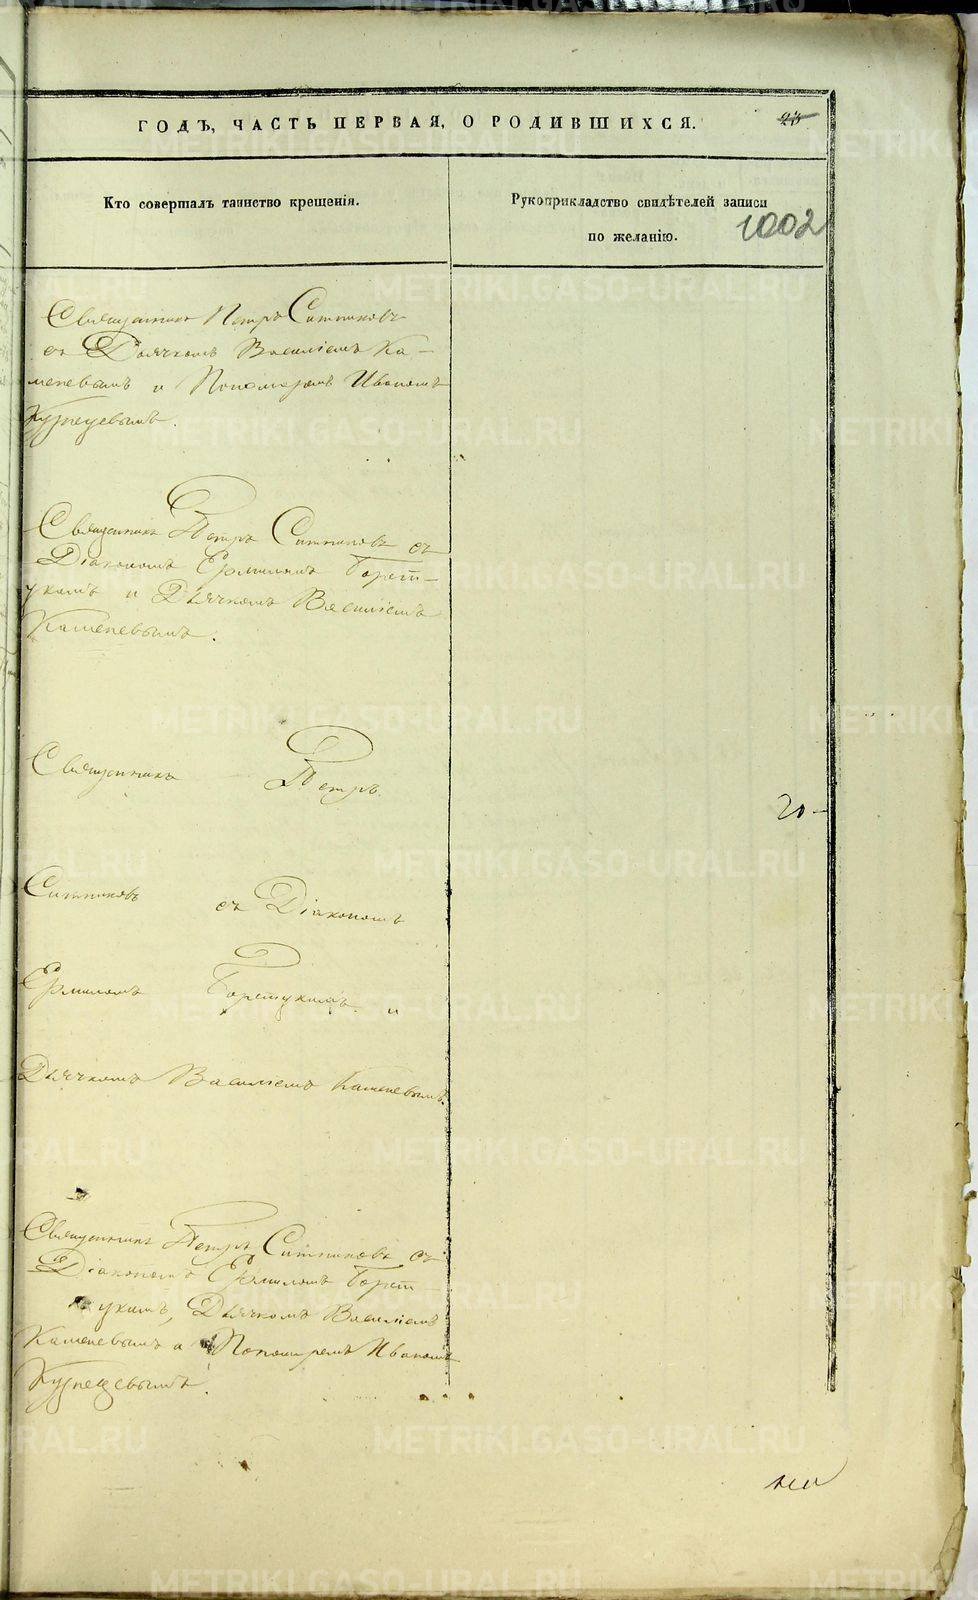 ГОДЪ, ЧАСТЬ ПЕРВАЯ, О РОДИВШИХСЯ.
Кто совершалъ таинство крещенія.
Рукоприкладство свидѣтелей записи
по желанію.
1002
Священникъ Петръ Ситниковъ
съ Дьячкомъ Василіемъ Ка-
меневымъ и Пономаремъ Иваномъ
Кузнецевымъ.
Священникъ Петръ Ситниковъ съ
Діакономъ Ермиломъ
и Дьячкомъ Василіемъ
Каменевымъ.
Священникъ Петръ
20-
Ситниковъ съ Діакономъ
Ермиломъ и
Дьячкомъ Василіемъ Каменевымъ.
Священникъ Петръ Ситниковъ съ
Діакономъ Ермиломъ
Дьячкомъ Василіемъ
Каменевымъ и Пономаремъ Иваномъ
Кузнецевымъ.
METRIKI.GASO-URAL.RU